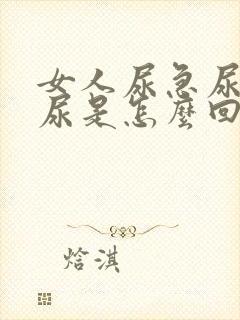 女人尿急尿
尿是怎麼回
焓淇